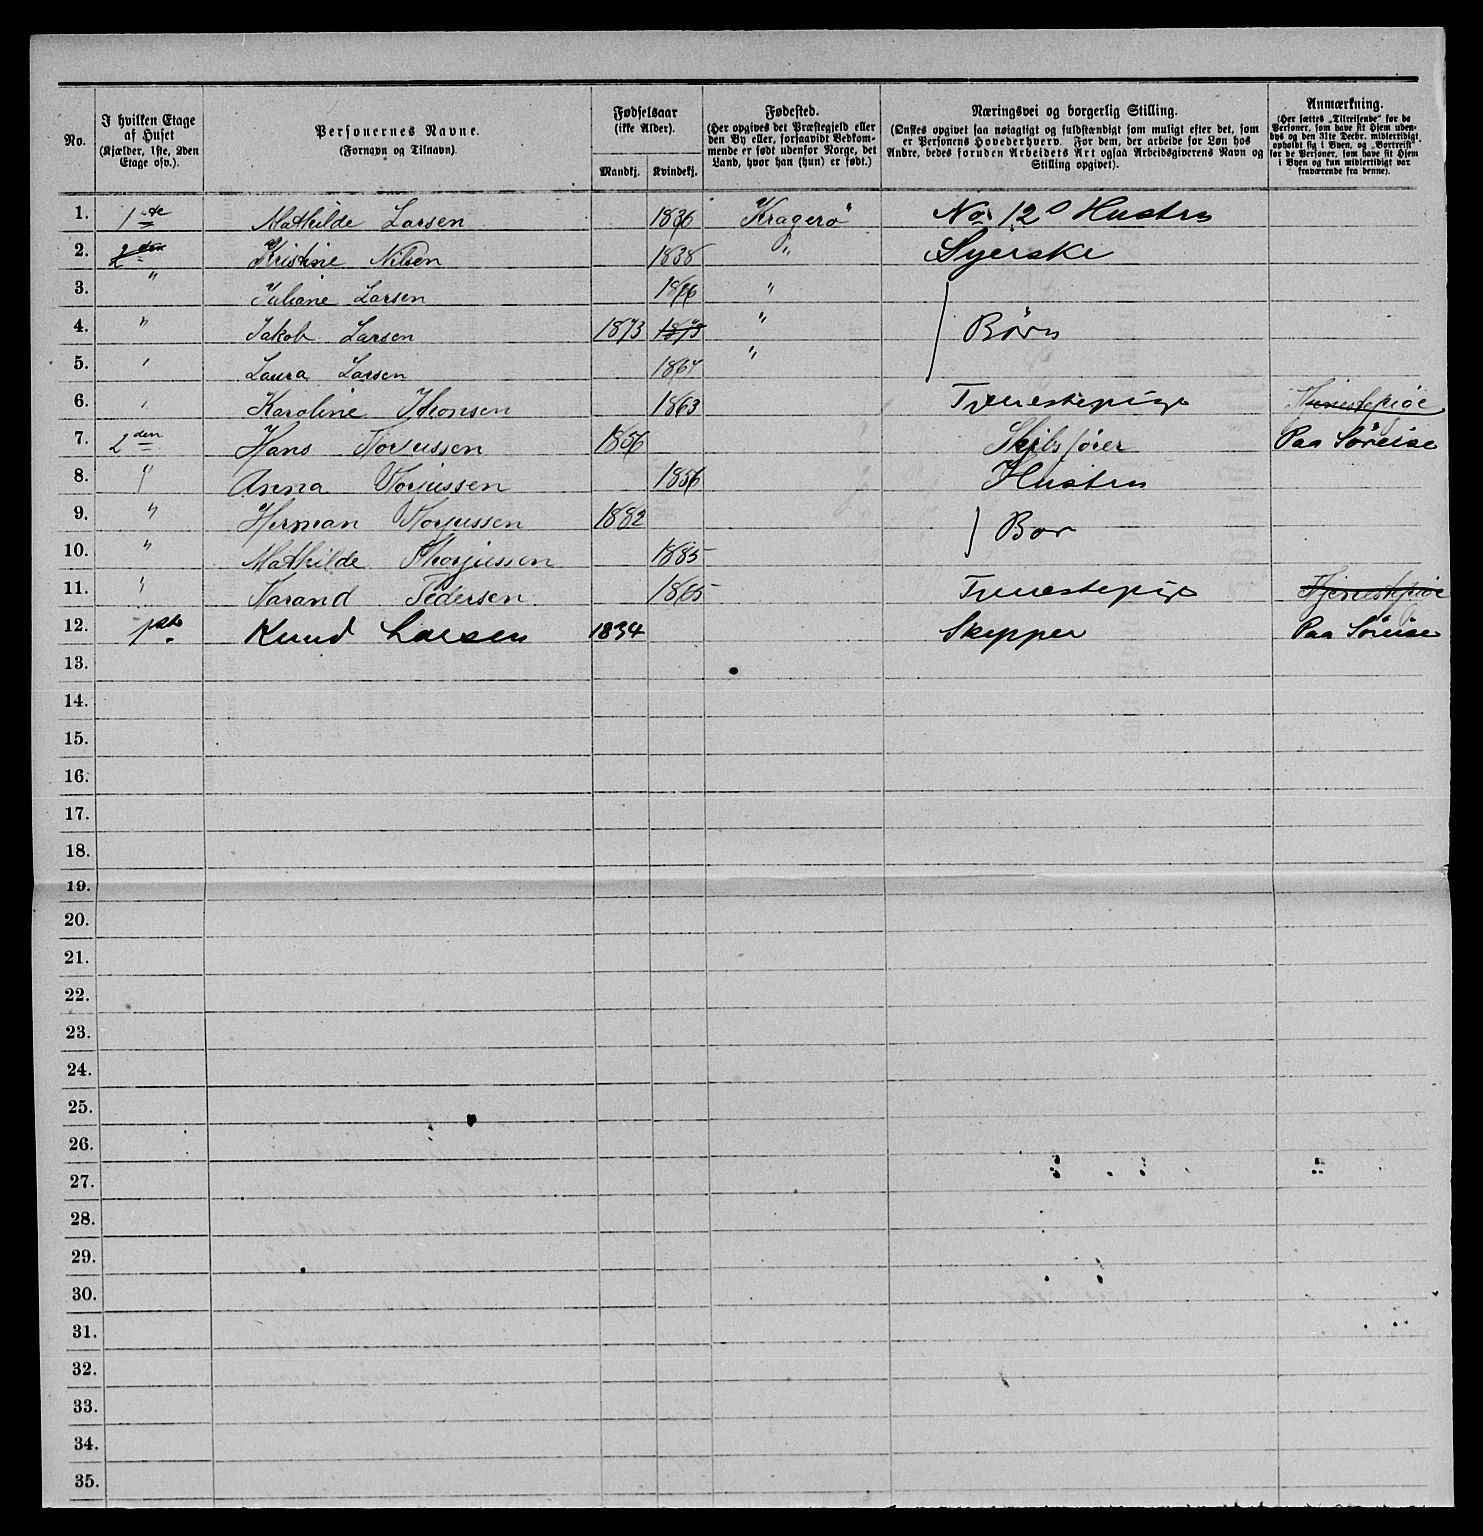 No.
I hvilken Etage
af Huset
(Kjælder, 1ste, 2den
Etage osv.).
Personernes Navne.
(Fornavn og Tilnavn).
Fødselsaar
(ikke Alder).
Mandkj. Kvindekj.
Fødested.
(Her opgives det Præstegjeld eller
den By eller, forsaavidt Vedkom-
mende er født udenfor Norge, det
Land, hvor han (hun) er født.)
Næringsvei og borgerlig Stilling.
(Ønskes opgivet saa nøiagtigt og fuldstændigt som muligt efter det, som
er Personens Hovederhverv. For dem, der arbeide for Løn hos
Andre, bedes foruden Arbeidets Art ogsaa Arbeidsgiverens Navn og
Stilling opgivet).
Anmærkning.
(Her sættes „Tilreisende“ for de
Personer, som have sit Hjem uden-
bys og den 31te Decbr. midlertidigt
opholdt sig i Byen, og „Bortreist“
for de Personer, som have sit Hjem
i Byen og kun midlertidigt var
fraværende fra denne).
1. 1ste Mathilde Larsen 1836 Kragerø No 12s Hustru
2. 2den Kristine Nilsen 1838 " Syerske
3. " Juliane Larsen 1866 "
4. " Jakob Larsen 1873 1873 " Børn
5. " Laura Larsen 1864 "
6. " Karoline Thonsen 1863 Tjenestepige
7. 2den Hans Torjussen 1856 Skibsfører Paa Søreise
8. " Anna Torjussen 1856 Hustru
9. " Herman Torjussen 1882 Bør
10. " Mathilde Thorjussen 1885
11. " Karand Pedersen 1865 Tjenestepige
12. 1ste Knud Larsen 1834 Skipper Paa Søreise
13.
14.
15.
16.
17.
18.
19.
20.
21.
22.
23.
24.
25.
26.
27.
28.
29.
30.
31.
32.
33.
34.
35.